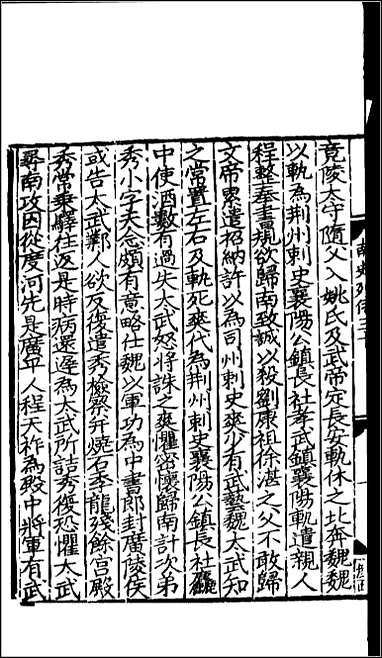 竟陵太守隨父入姚氏及武帝定長安軌休之北奔魏魏
以軌為荆州刺史襄陽公鎮長社孝武鎮襄陽軌遣親人
程整奉書規欲歸南致誠以殺劉康祖徐湛之父不敢歸
文帝累遣招納許以為司州刺史爽少有武藝魏太武知
之常置左右及軌死爽代為荆州刺史襄陽公鎮長社麤
中使酒數有過失太武怒將誅之爽懼密懷歸南計次弟
秀小字天念頗有意略仕魏以軍功為中書郎封廣陵侯
或告太武鄴人欲反復遣秀檢察并燒石季龍殘餘宮殿
秀常乘驛往返是時病還遲為太武所詰秀復恐懼太武
尋南攻因從度河先是廣平人程天祚為殿中將軍有武